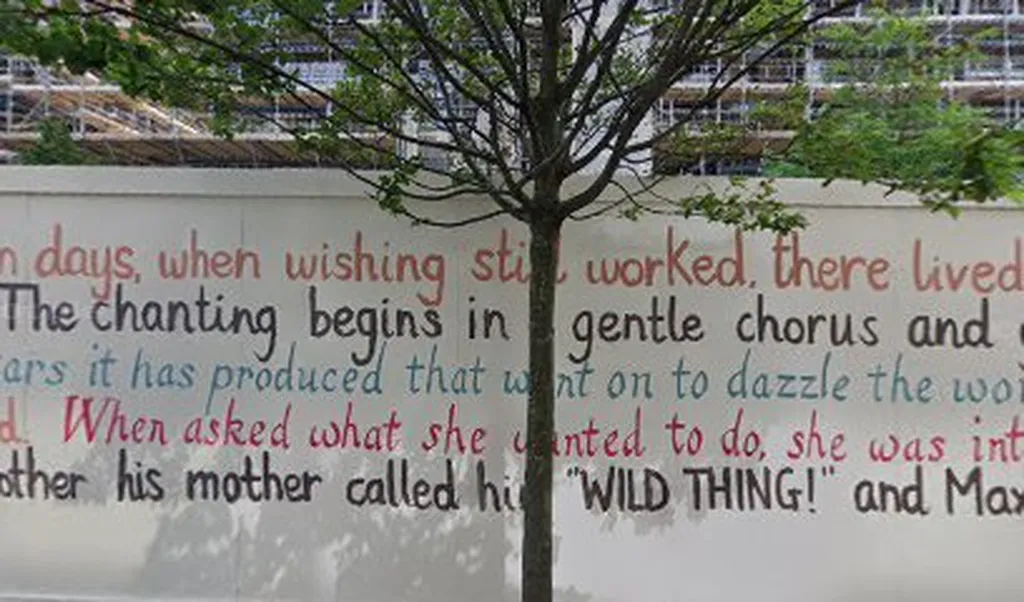 n days, when wishing still worked, there lived
The chanting begins in gentle chorus and
ars it has produced that went on to dazzle the wo
d. When asked what she wanted to do, she was int
other his mother called hi "WILD THING!" and Max